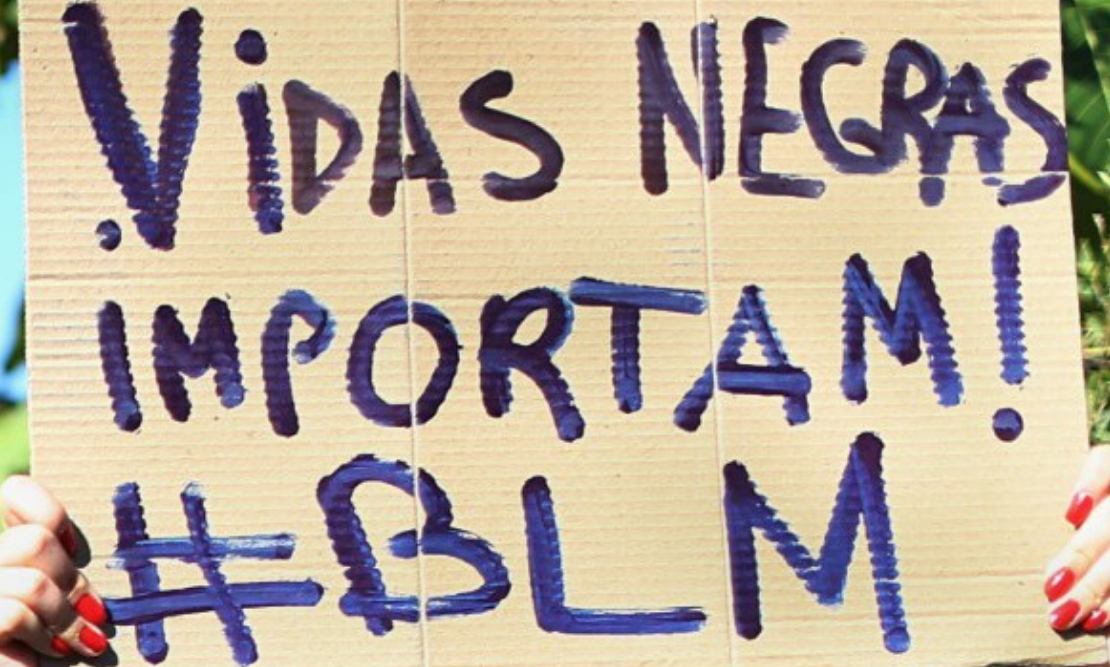 ViDAS NEGRAS
IMPORTAM!
#BLM